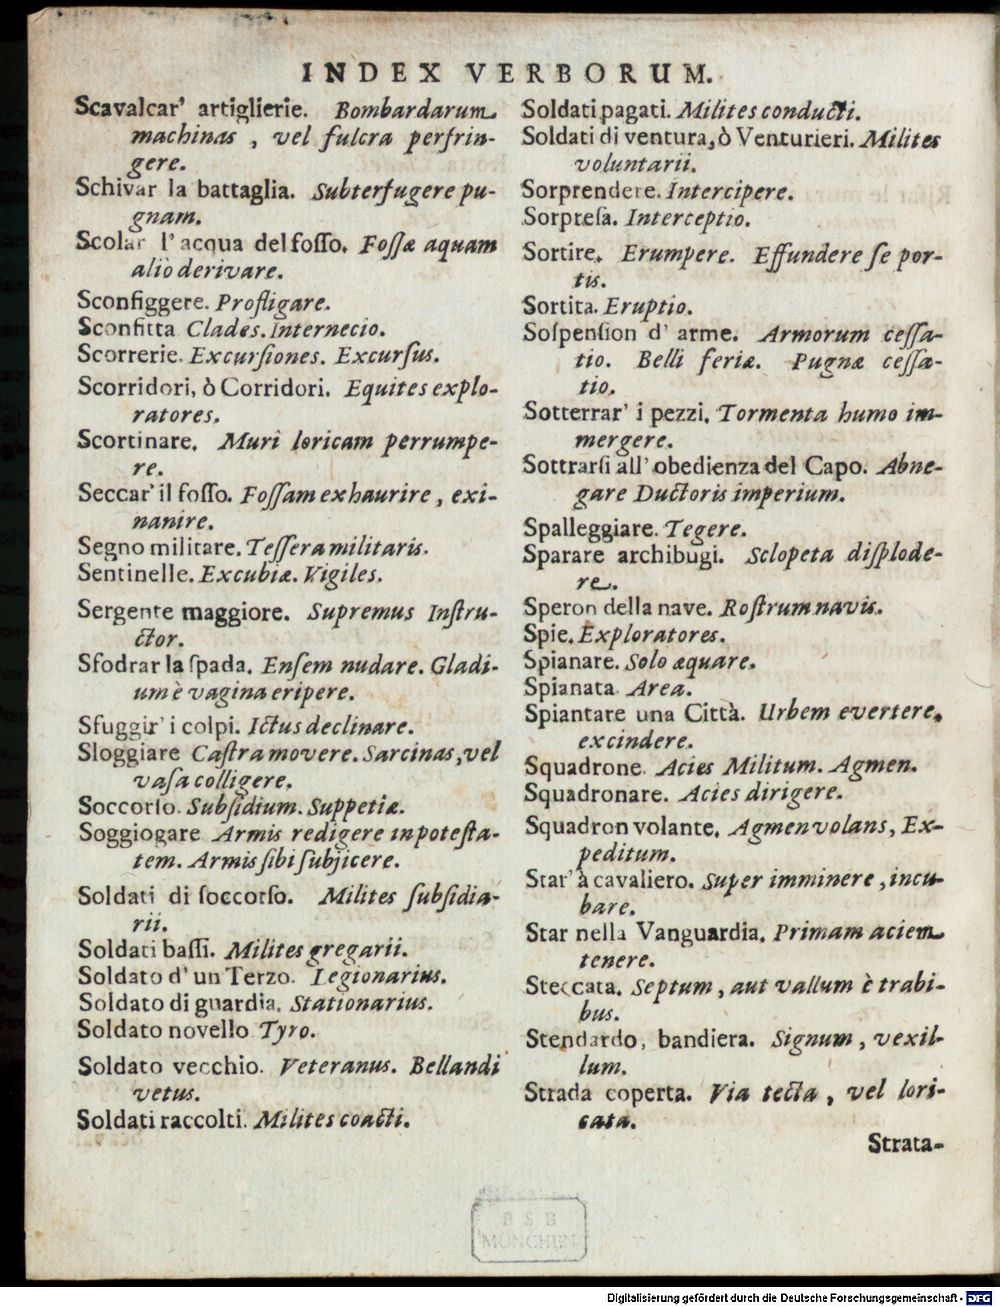 INDEX VERBORUM.
Scavalcar' artiglierie. Bombardarum
machinas , vel fulcra perfrin-
gere.
Schivar la battaglia. Subterfugere pu-
gnam.
Scolar l'acqua del foſſo. Foſſæ aquam
aliò derivare.
Sconfiggere. Profligare.
Sconfitta Clades. Internecio.
Scorrerie. Excurſiones. Excurſus.
Scorridori, ò Corridori. Equites explo-
ratores.
Scortinare. Muri loricam perrumpe-
re.
Seccar' il foſſo. Foſſam exhaurire, exi-
nanire.
Segno militare. Teſſera militaris.
Sentinelle. Excubiæ. Vigiles.
Sergente maggiore. Supremus Inſtru-
ctor.
Sfodrar la ſpada. Enſem nudare. Gladi-
um è vagina eripere.
Sfuggir' i colpi. Ictus declinare.
Sloggiare Caſtra movere. Sarcinas, vel
vaſa colligere.
Soccorſo. Subſidium. Suppetiæ.
Soggiogare Armis redigere in poteſta-
tem. Armis ſibi ſubjicere.
Soldati di ſoccorſo. Milites ſubſidia-
rii.
Soldati baſſi. Milites gregarii.
Soldato d'un Terzo. Legionarius.
Soldato di guardia. Stationarius.
Soldato novello Tyro.
Soldato vecchio. Veteranus. Bellandi
vetus.
Soldati raccolti. Milites coacti.
Soldati pagati. Milites conducti.
Soldati di ventura, ò Venturieri. Milites
voluntarii.
Sorprendere. Intercipere.
Sorpreſa. Interceptio.
Sortire. Erumpere. Effundere ſe por-
tis.
Sortita. Eruptio.
Soſpenſion d' arme. Armorum ceſſa-
tio. Belli feriæ. Pugnæ ceſſa-
tio.
Sotterrar' i pezzi. Tormenta humo im-
mergere.
Sottrarſi all' obedienza del Capo. Abne-
gare Ductoris imperium.
Spalleggiare. Tegere.
Sparare archibugi. Sclopeta diſplode-
re.
Speron della nave. Roſtrum navis.
Spie. Exploratores.
Spianare. Solo æquare.
Spianata. Area.
Spiantare una Città. Urbem evertere,
excindere.
Squadrone. Acies Militum. Agmen.
Squadronare. Acies dirigere.
Squadron volante. Agmen volans, Ex-
peditum.
Star' à cavaliero. Super imminere, incu-
bare.
Star nella Vanguardia. Primam aciem
tenere.
Steccata. Septum, aut vallum è trabi-
bus.
Stendardo, bandiera. Signum, vexil-
lum.
Strada coperta. Via tecta, vel lori-
cata.
Strata-
B S B
MÜNCHEN
Digitalisierung gefördert durch die Deutsche Forschungsgemeinschaft - DFG